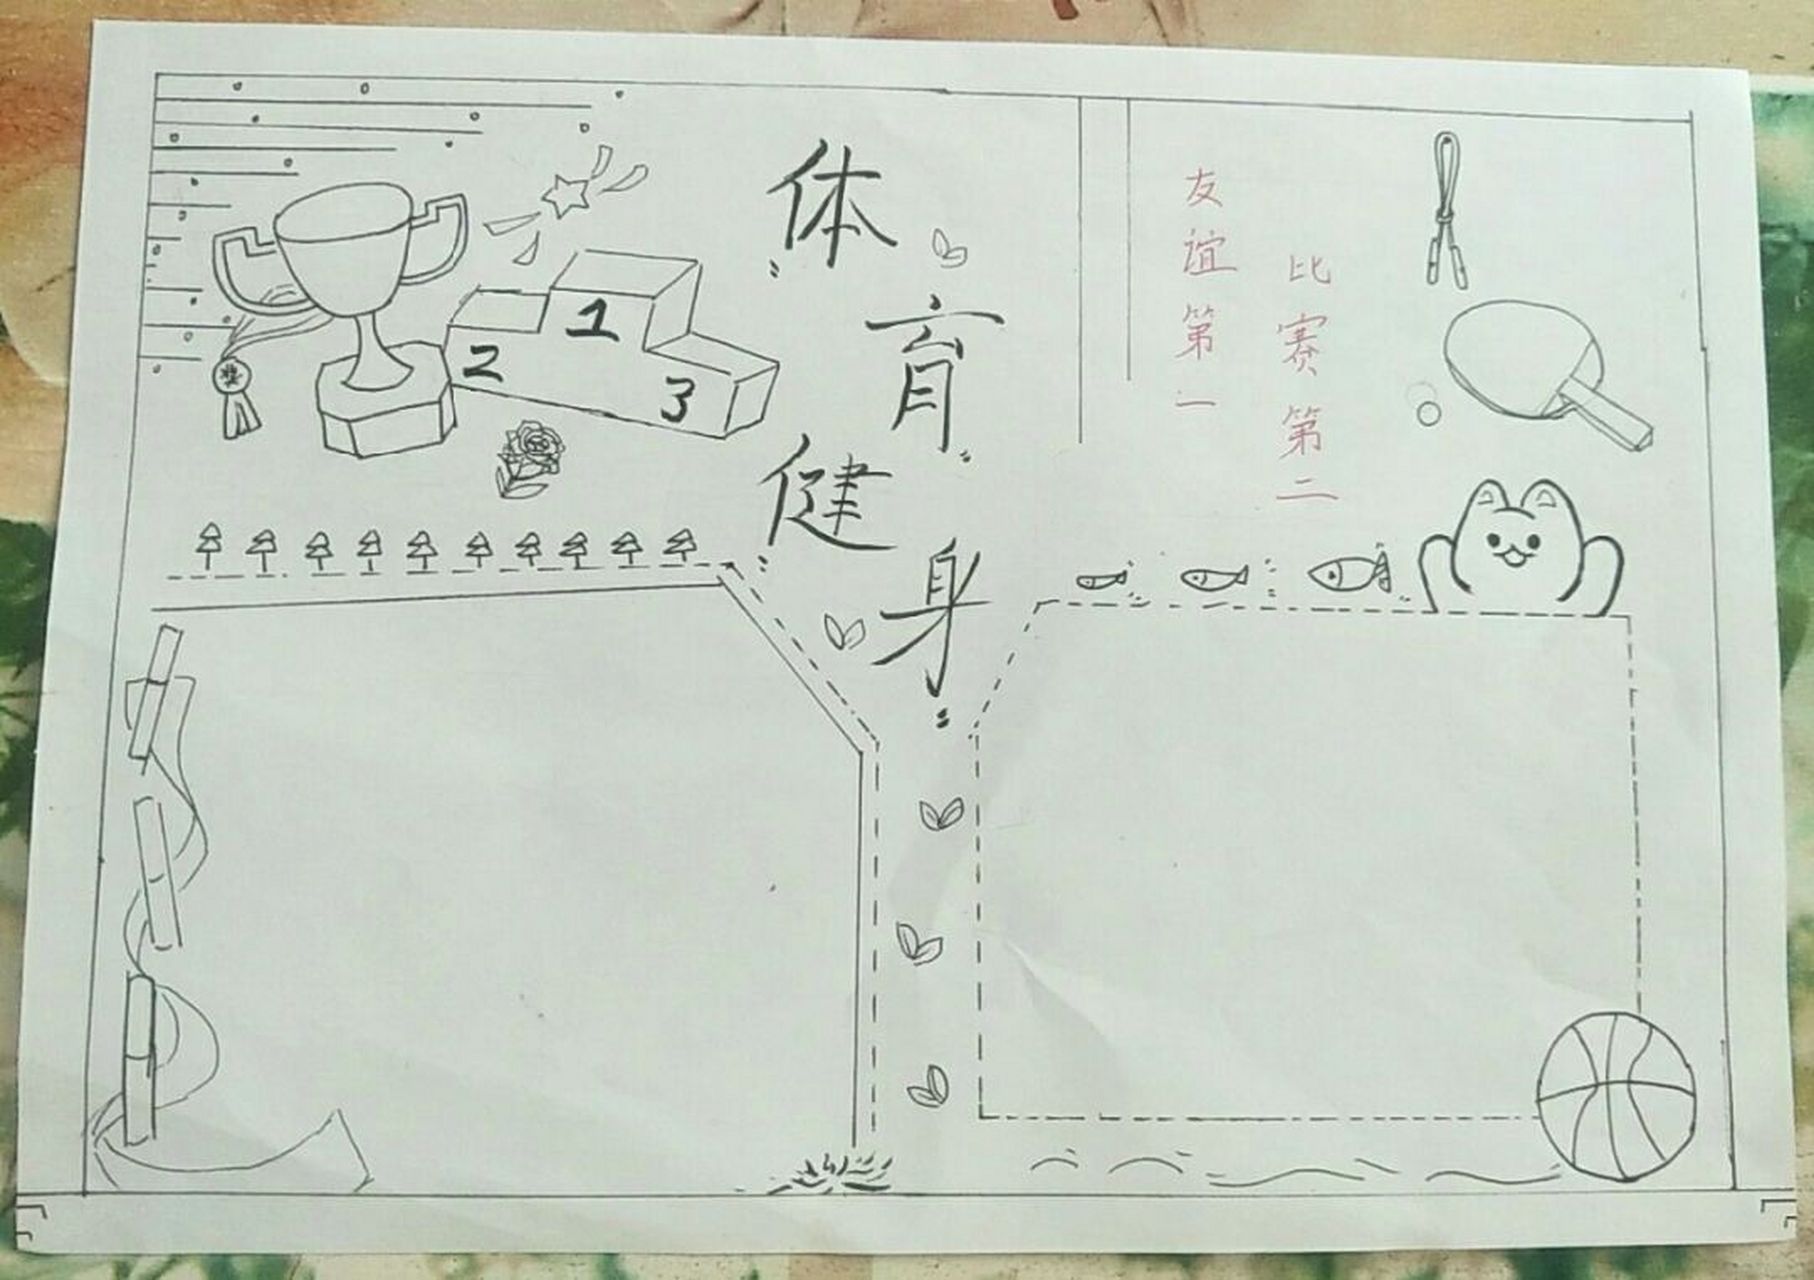 体育健身
友谊第一
比赛第二
1
2
3